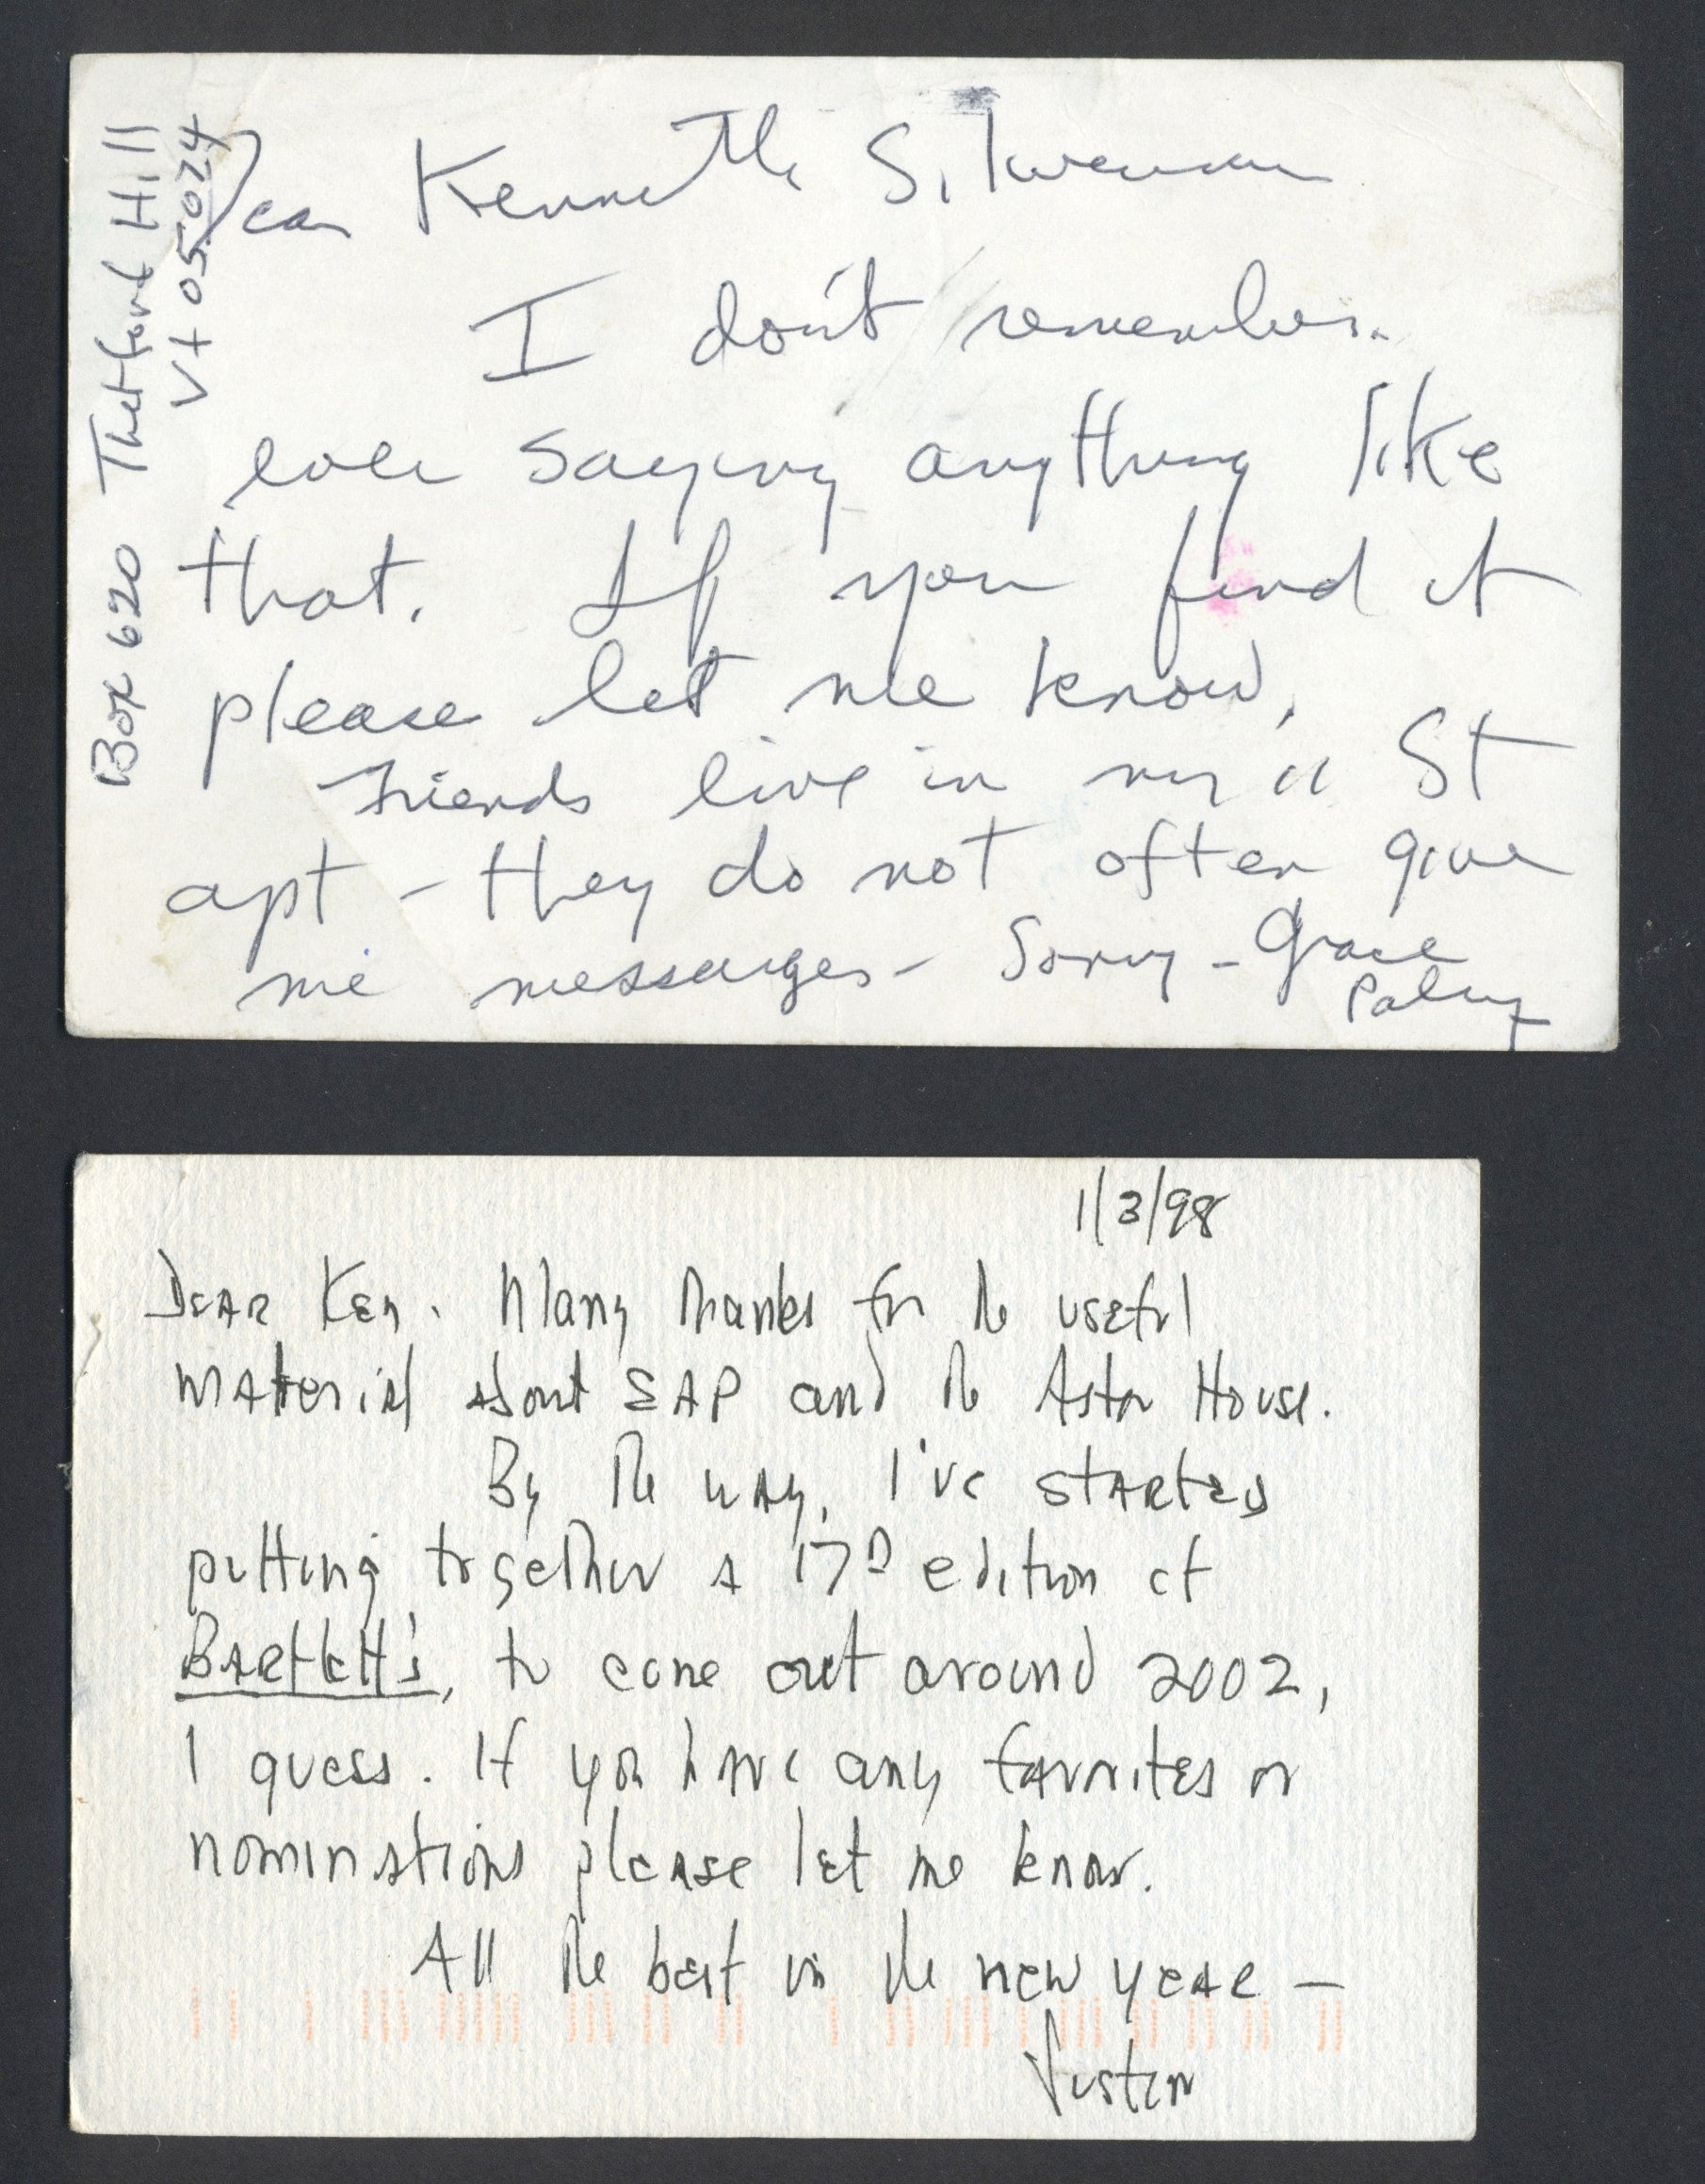 Box 620 Thetford Hill
Vt 05024
Dear Kenneth Silverman
I don't remember
ever saying anything like
that. If you find it
please let me know.
Friends live in my 11 St
apt - they do not often give
me messages - Sorry - Grace
Paley
1/3/98
Dear Ken. Many thanks for the useful
material about EAP and the Astor House.
By the way, I've started
putting together a 17th edition of
Bartlett's, to come out around 2002,
I guess. If you have any favorites or
nominations please let me know.
All the best in the new year —
Justin